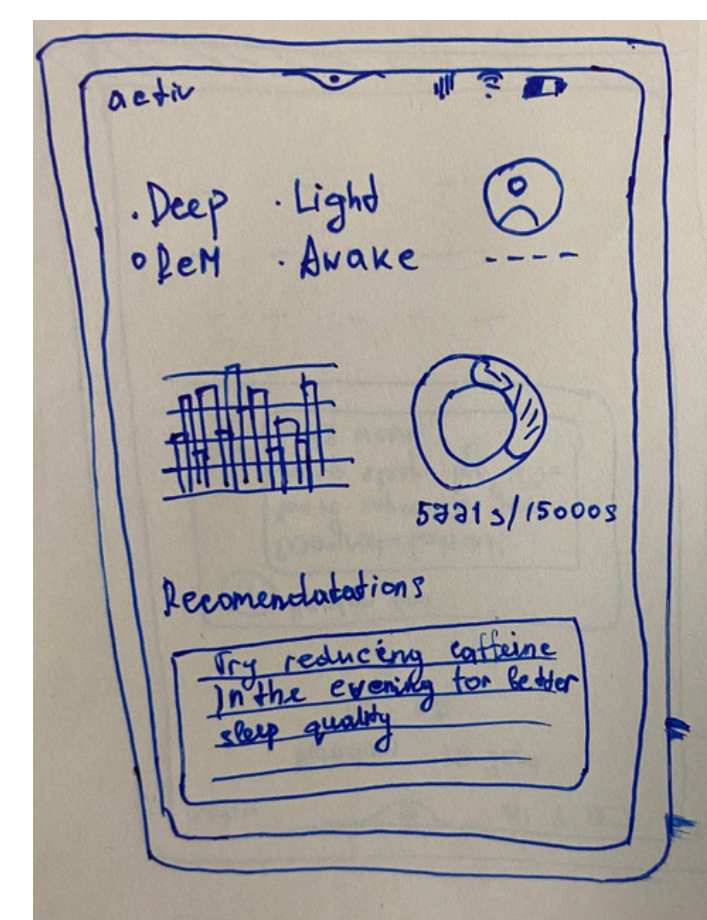 activ
. Deep . Light
o ReM . Awake
5721s/15000s
Recomendatations
Try reducing caffeine
In the evening for better
sleep quality